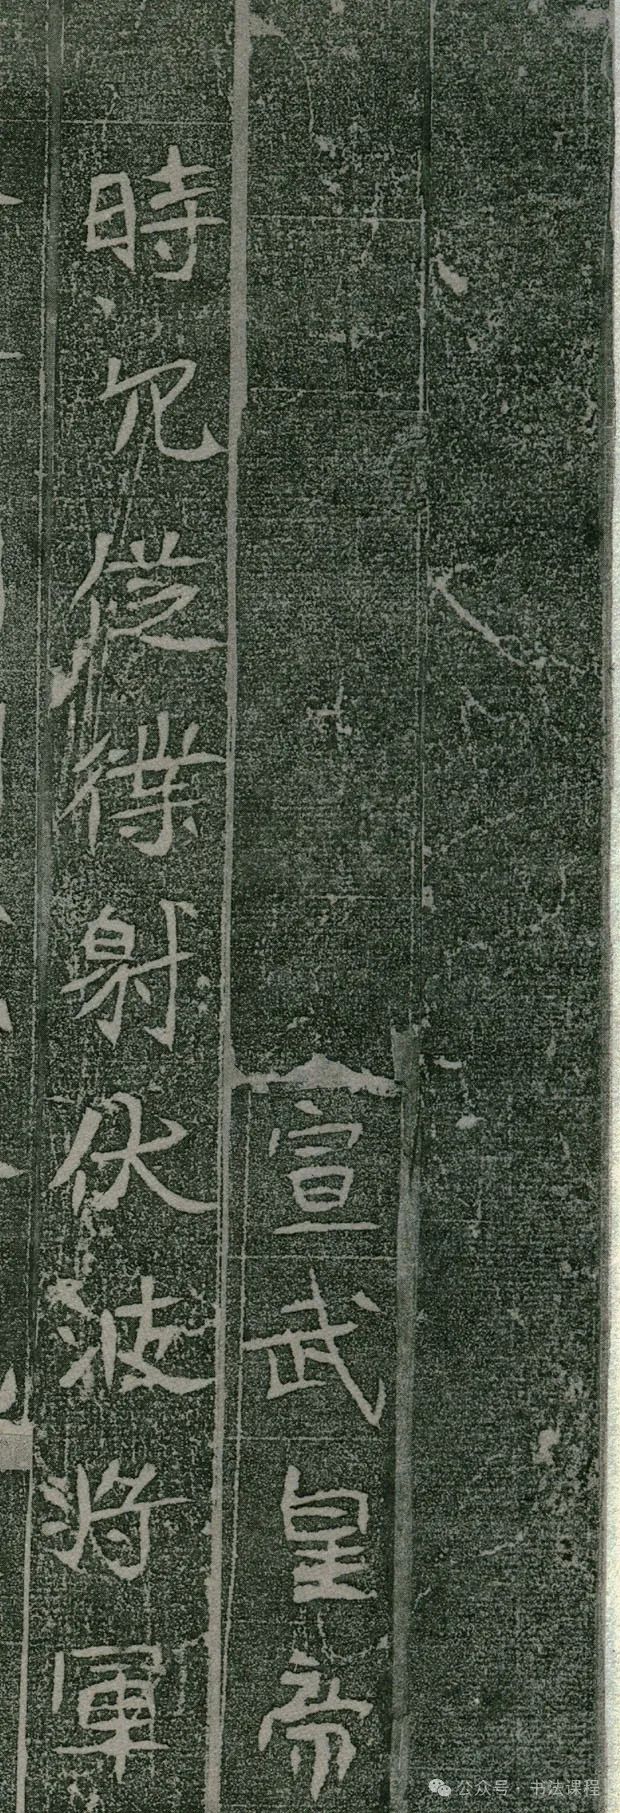 宣武皇帝
時冗從僕射伏波將軍
公众号 · 书法课程